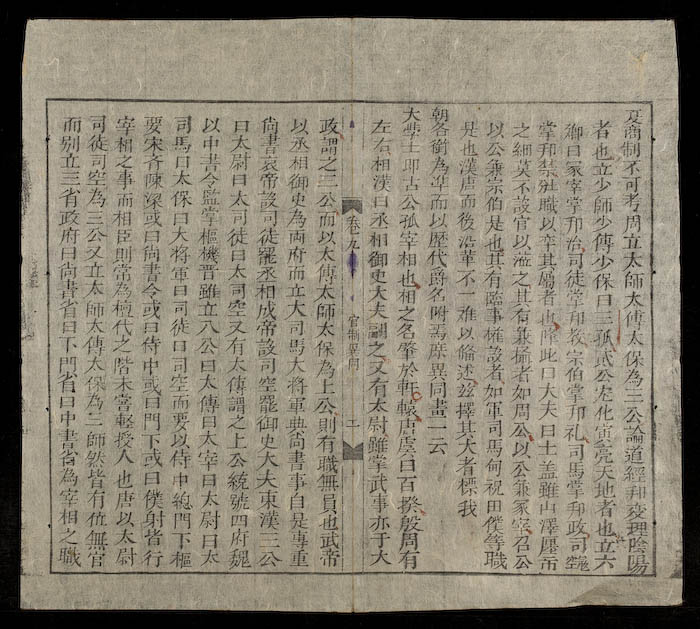 夏商制不可考周立太師太傅太保為三公論道經邦燮理陰陽
者也立少師少傅少保曰三孤貳公宏化寅亮天地者也立六
卿曰冢宰掌邦治司徒掌邦教宗伯掌邦礼司馬掌邦政司空
掌邦禁 職以率其屬者也降此曰大夫曰士盖雖山澤廛市
之細莫不設官以涖之其有兼脩者如周公以公兼冢宰召公
以公兼宗伯是也其有臨事權設者如軍司馬甸祝田僕等職
是也漢唐而後沿革不一難以俻述玆擇其大者標我
朝各銜為準而以歷代爵名附焉庶異同畫一云
大學士即古公孤宰相也相之名肇於軒轅唐虞曰百揆殷周有
左右相漢曰丞相御史大夫謂之 又有太尉雖掌武事亦于大
政謂之三公而以太傅太師太保為上公則有職無員也武帝
以丞相御史為两府而立大司馬大将軍典尚書事自是事重
尚書哀帝設司徒罷丞相成帝設司空罷御史大夫東漢三公
曰太尉曰太司徒曰太司空又有大傅謂之上公統號四府魏
以中書令監掌樞機晋雖立八公曰太傅曰太宰曰太尉曰太
司馬曰太保曰大將軍曰司徒曰司空而要以侍中総門下樞
要宋斉陳梁或曰尚書令或曰侍中或曰門下或曰僕射皆行
宰相之事而相臣則常為禪代之階未嘗輕授人也唐以太尉
司徒司空為三公又立太師太傅太保為三師然皆有位無官
而别立三省政府曰尚書省曰下門省曰中書省為宰相之職
卷九
官制異同
一